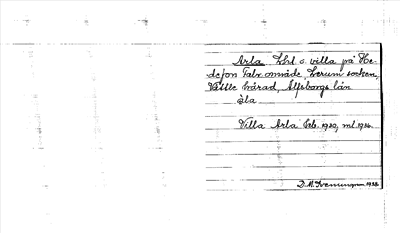 Arla, Lht o. villa på He-
defors Fabr. område, Lerum socken,
Vättle härad, Älfsborgs län
äla
Villa Arla Feb. 1920, ml 1936.
D. A. Svenungsson 1938